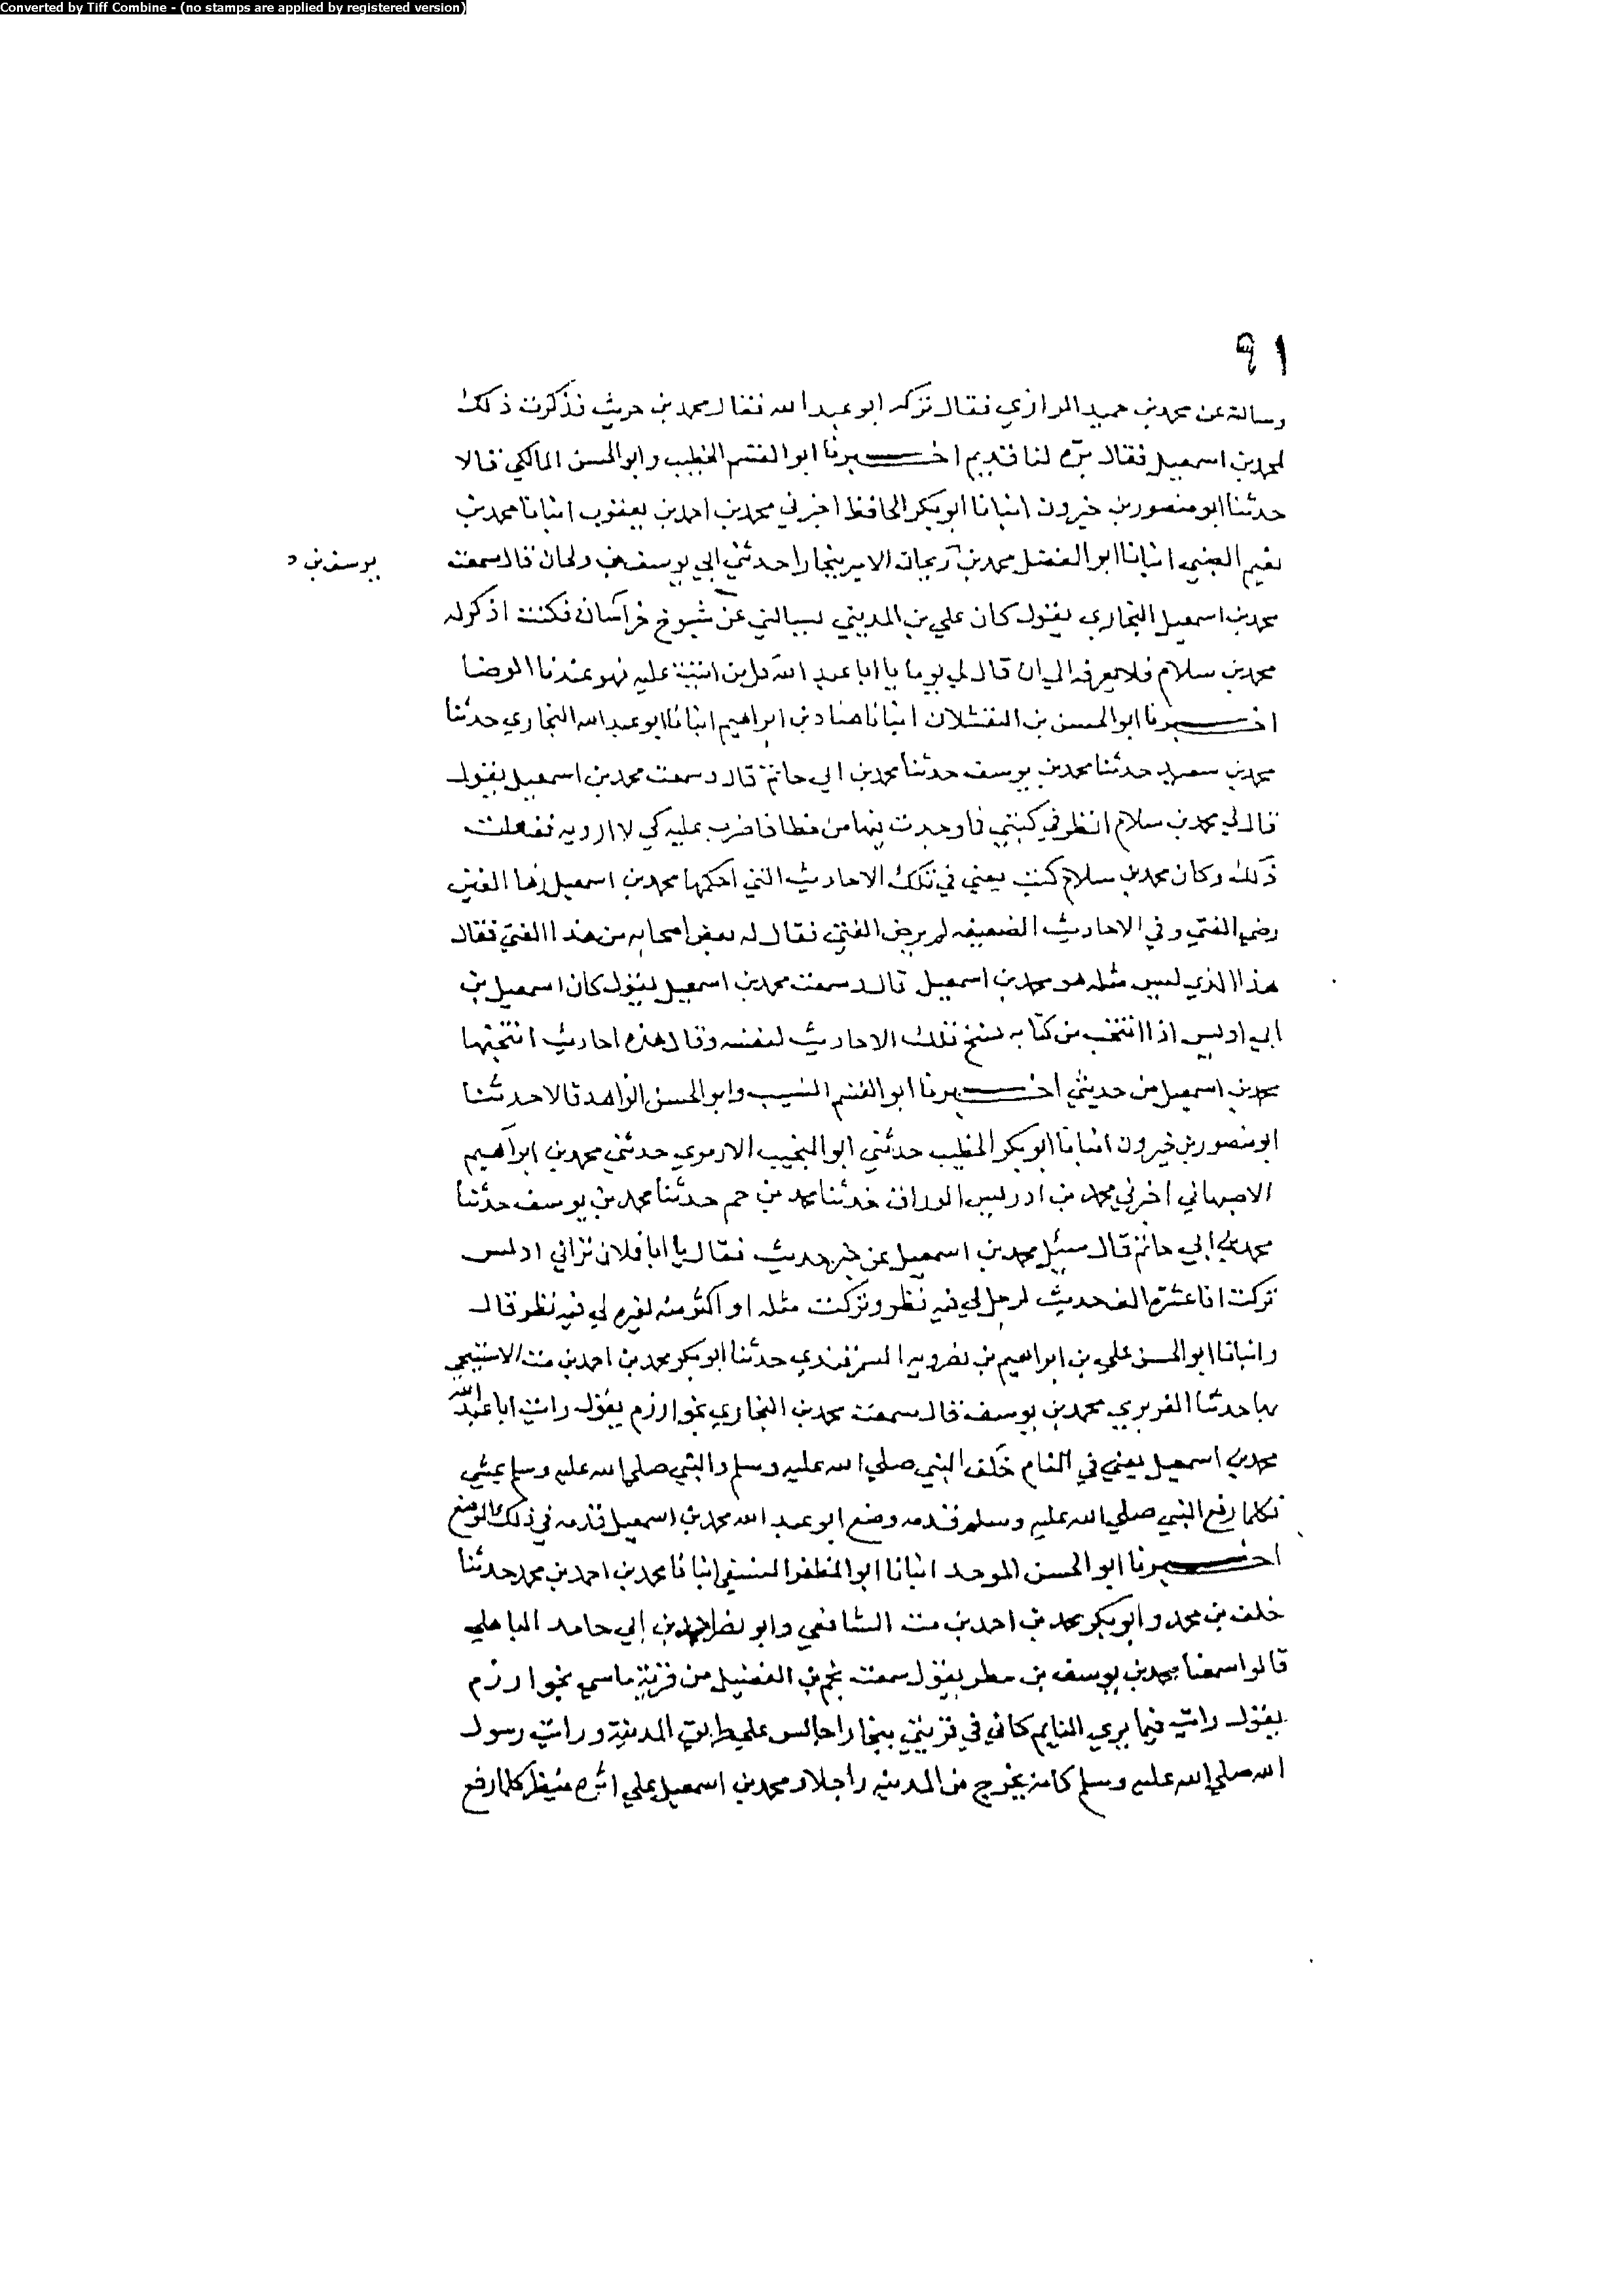 Converted by Tiff Combine - (no stamps are applied by registered version)
٩١
وسالته عن محمد بن حميد الرازي فقال تركه ابو عبد الله فقال محمد بن حريث فذكرت ذلك
لمحمد بن اسمعيل فقال بره لنا قديم اخبرنا ابو القسم الخطيب وابو الحسن المالكي قالا
حدثنا ابو منصور بن خيرون انبانا ابو بكر الحافظ اخبرني محمد بن احمد بن يعقوب انبانا محمد بن
نعيم الضبي انبانا ابو الفضل محمد بن الامير ببخارا حدثني ابي يوسف بن ريحان قال سمعت
يوسف بن
محمد بن اسمعيل البخاري يقول كان علي بن المديني يسالني عن شيوخ خراسان فكنت اذكر له
محمد بن سلام فلا يعرفه الي ان قال لي يوما يا ابا عبد الله كل من اثنيت عليه فهو عندنا الرضا
اخبرنا ابو الحسن بن انبانا هناد بن ابراهيم انبانا ابو عبد الله البخاري حدثنا
محمد بن سعيد حدثنا محمد بن يوسف حدثنا محمد بن ابي حاتم قال وسمعت محمد بن اسمعيل يقول
قال لي محمد بن سلام انظر في كتبي فما وجدت فيها من خطا فاضرب عليه كي لا ارويه ففعلت
ذلك وكان محمد بن سلام كتب يعني في تلك الاحاديث التي احكمها محمد بن اسمعيل رضا الفتي
رضي الفتي وفي الاحاديث الضعيفه لم يرض الفتي فقال له بعض اصحابه من هذا الفتي فقال
هذا الذي ليس مثله هو محمد بن اسمعيل قال وسمعت محمد بن اسمعيل يقول كان اسمعيل بن
ابي اويس اذا انتخبت من كتابه نسخ تلك الاحاديث لنفسه وقال هذه احاديث انتخبها
محمد بن اسمعيل من حديثي اخبرنا ابو القسم النسيب وابو الحسن الزاهد قالا حدثنا
ابو منصور بن خيرون انبانا ابو بكر الخطيب حدثني ابو النجيب الارموي حدثني محمد بن ابراهيم
الاصبهاني اخبرني محمد بن ادريس الوراق حدثنا محمد بن حم حدثنا محمد بن يوسف حدثنا
محمد بن ابي حاتم قال سئل محمد بن اسمعيل عن خبر حديث فقال يا ابا فلان تراني ادلس
تركت انا عشرة الف حديث لرجل لي فيه نظر وتركت مثله او اكثر منه لغيره لي فيه نظر قال
وانبانا ابو الحسن علي بن ابراهيم بن نصرويه السمرقندي حدثنا ابو بكر محمد بن احمد بن مت الاشتيخني
بها حدثنا الفربري محمد بن يوسف قال سمعت محمد بن البخاري بخوارزم يقول رايت ابا عبد الله
محمد بن اسمعيل يعني في المنام خلف النبي صلي الله عليه وسلم والنبي صلي الله عليه وسلم يمشي
فكلما رفع النبي صلي الله عليه وسلم قدمه وضع ابو عبد الله محمد بن اسمعيل قدمه في ذلك الموضع
اخبرنا ابو الحسن الموحد انبانا ابو المظفر النسفي انبانا محمد بن احمد بن محمد حدثنا
خلف بن محمد وابو بكر محمد بن احمد بن مت الشافعي وابو نصر احمد بن ابي حامد الباهلي
قالوا سمعنا محمد بن يوسف بن مطر يقول سمعت نجم بن الفضيل من قرية ماسي بخوارزم
يقول رايت فيما يري النايم كاني في قريتي ببخارا جالس علي طريق المدينة ورايت رسول
الله صلي الله عليه وسلم كانه يخرج من المدينه راجلا ومحمد بن اسمعيل علي اثره كلما رفع